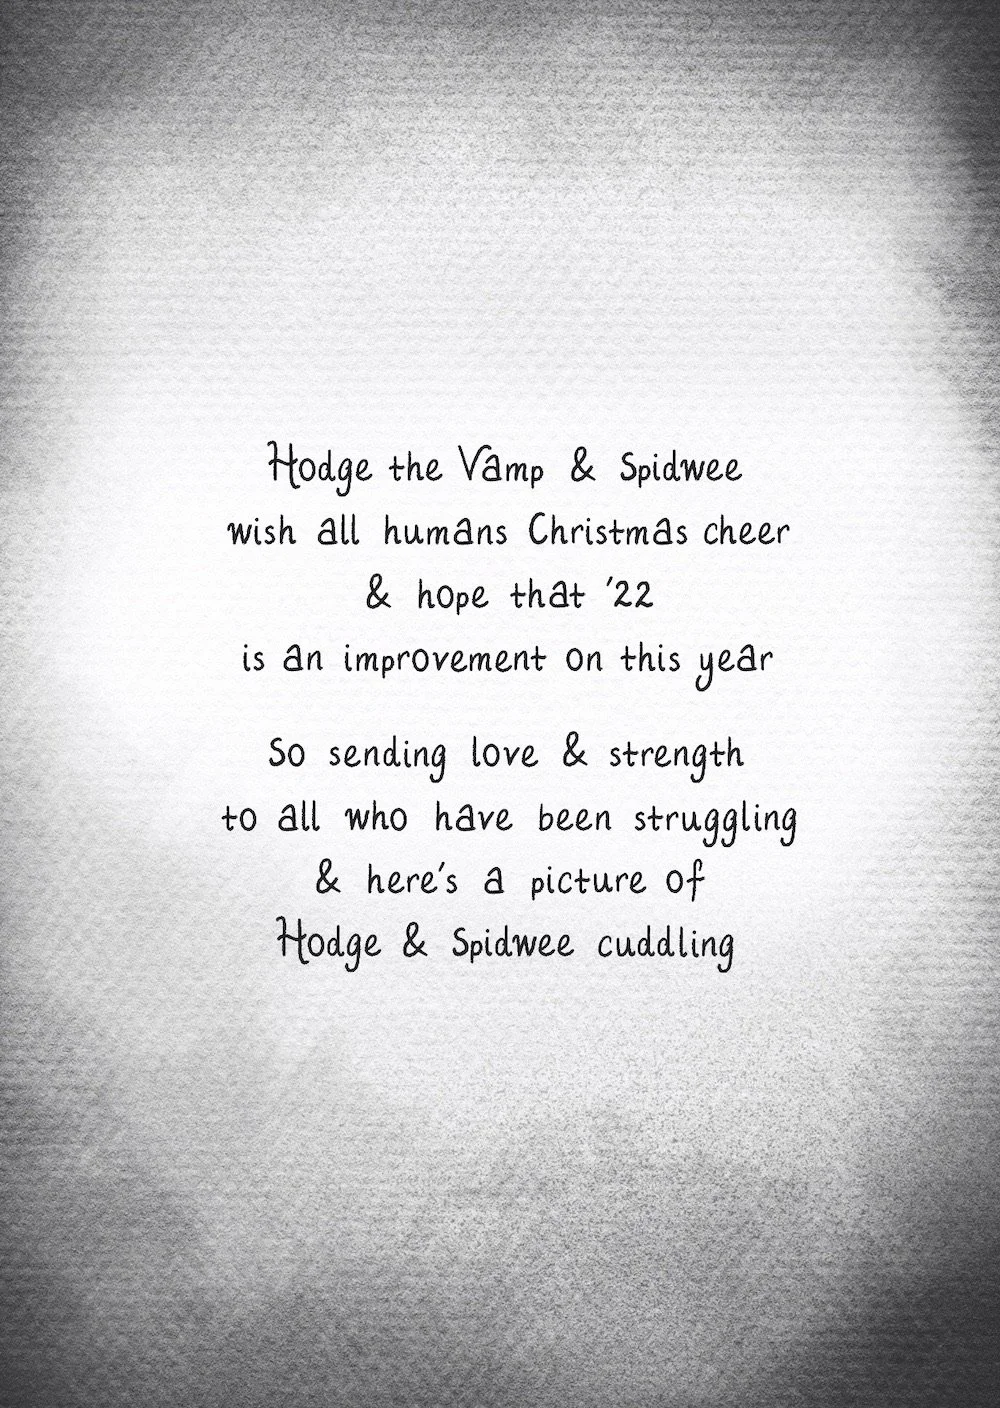 Hodge the Vamp & Spidwee
wish all humans Christmas cheer
& hope that '22
is an improvement on this year
So sending love & strength
to all who have been struggling
& here's a picture of
Hodge & Spidwee cuddling